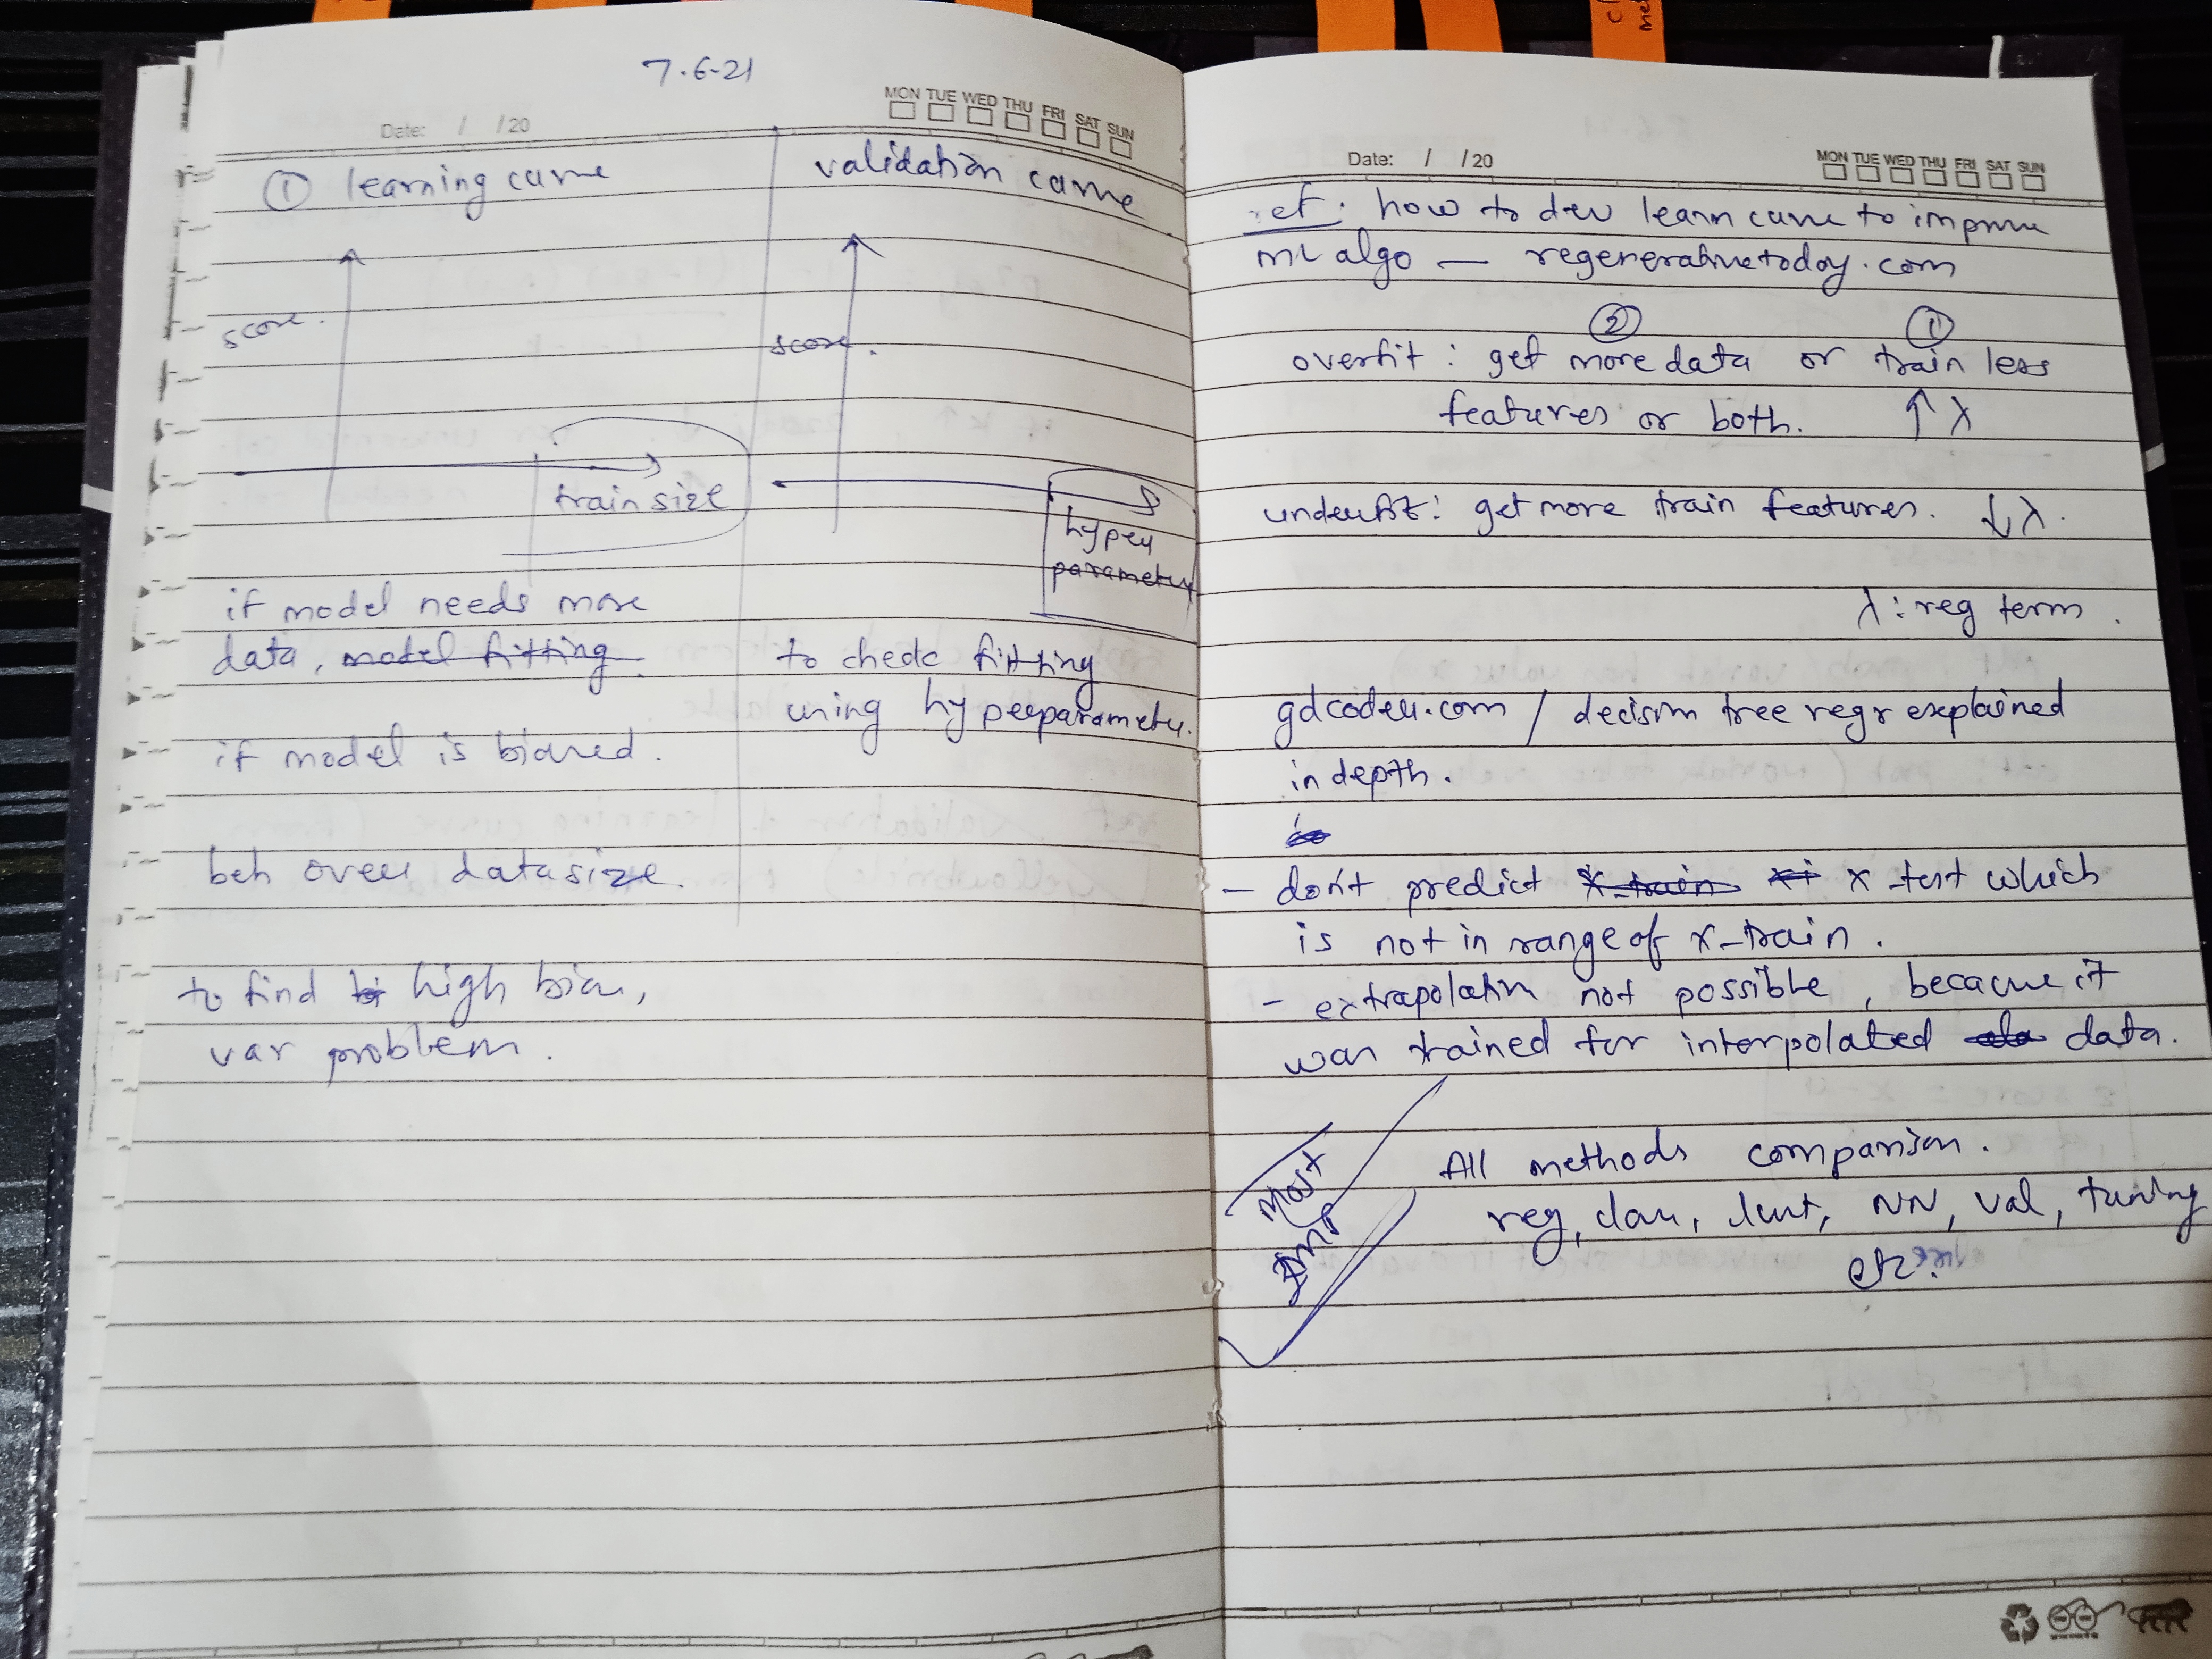 7.6-21
MON TUE WED THU FRI SAT SUN
Date: / /20
① learning curve
score.
train size
if model needs more
data, model fitting.
if model is biased.
beh over datasize.
to find high bias,
var problem.
validation curve
score.
hyper
parameter
to check fitting
using hyperparameter.
MON TUE WED THU FRI SAT SUN
Date: / /20
ref. how to dev learn curve to improve
ML algo — regenerativetoday.com
② ①
overfit : get more data or train less
features or both. ↑ λ
underfit: get more train features. ↓ λ.
λ : reg term.
gdcoder.com / decision tree regr explained
in depth.
- don't predict x_train x_test which
is not in range of x_train.
- extrapolation not possible, because it
was trained for interpolated data.
Most
Imp
All methods comparison.
reg, class, clust, NN, val, tuning
etc.